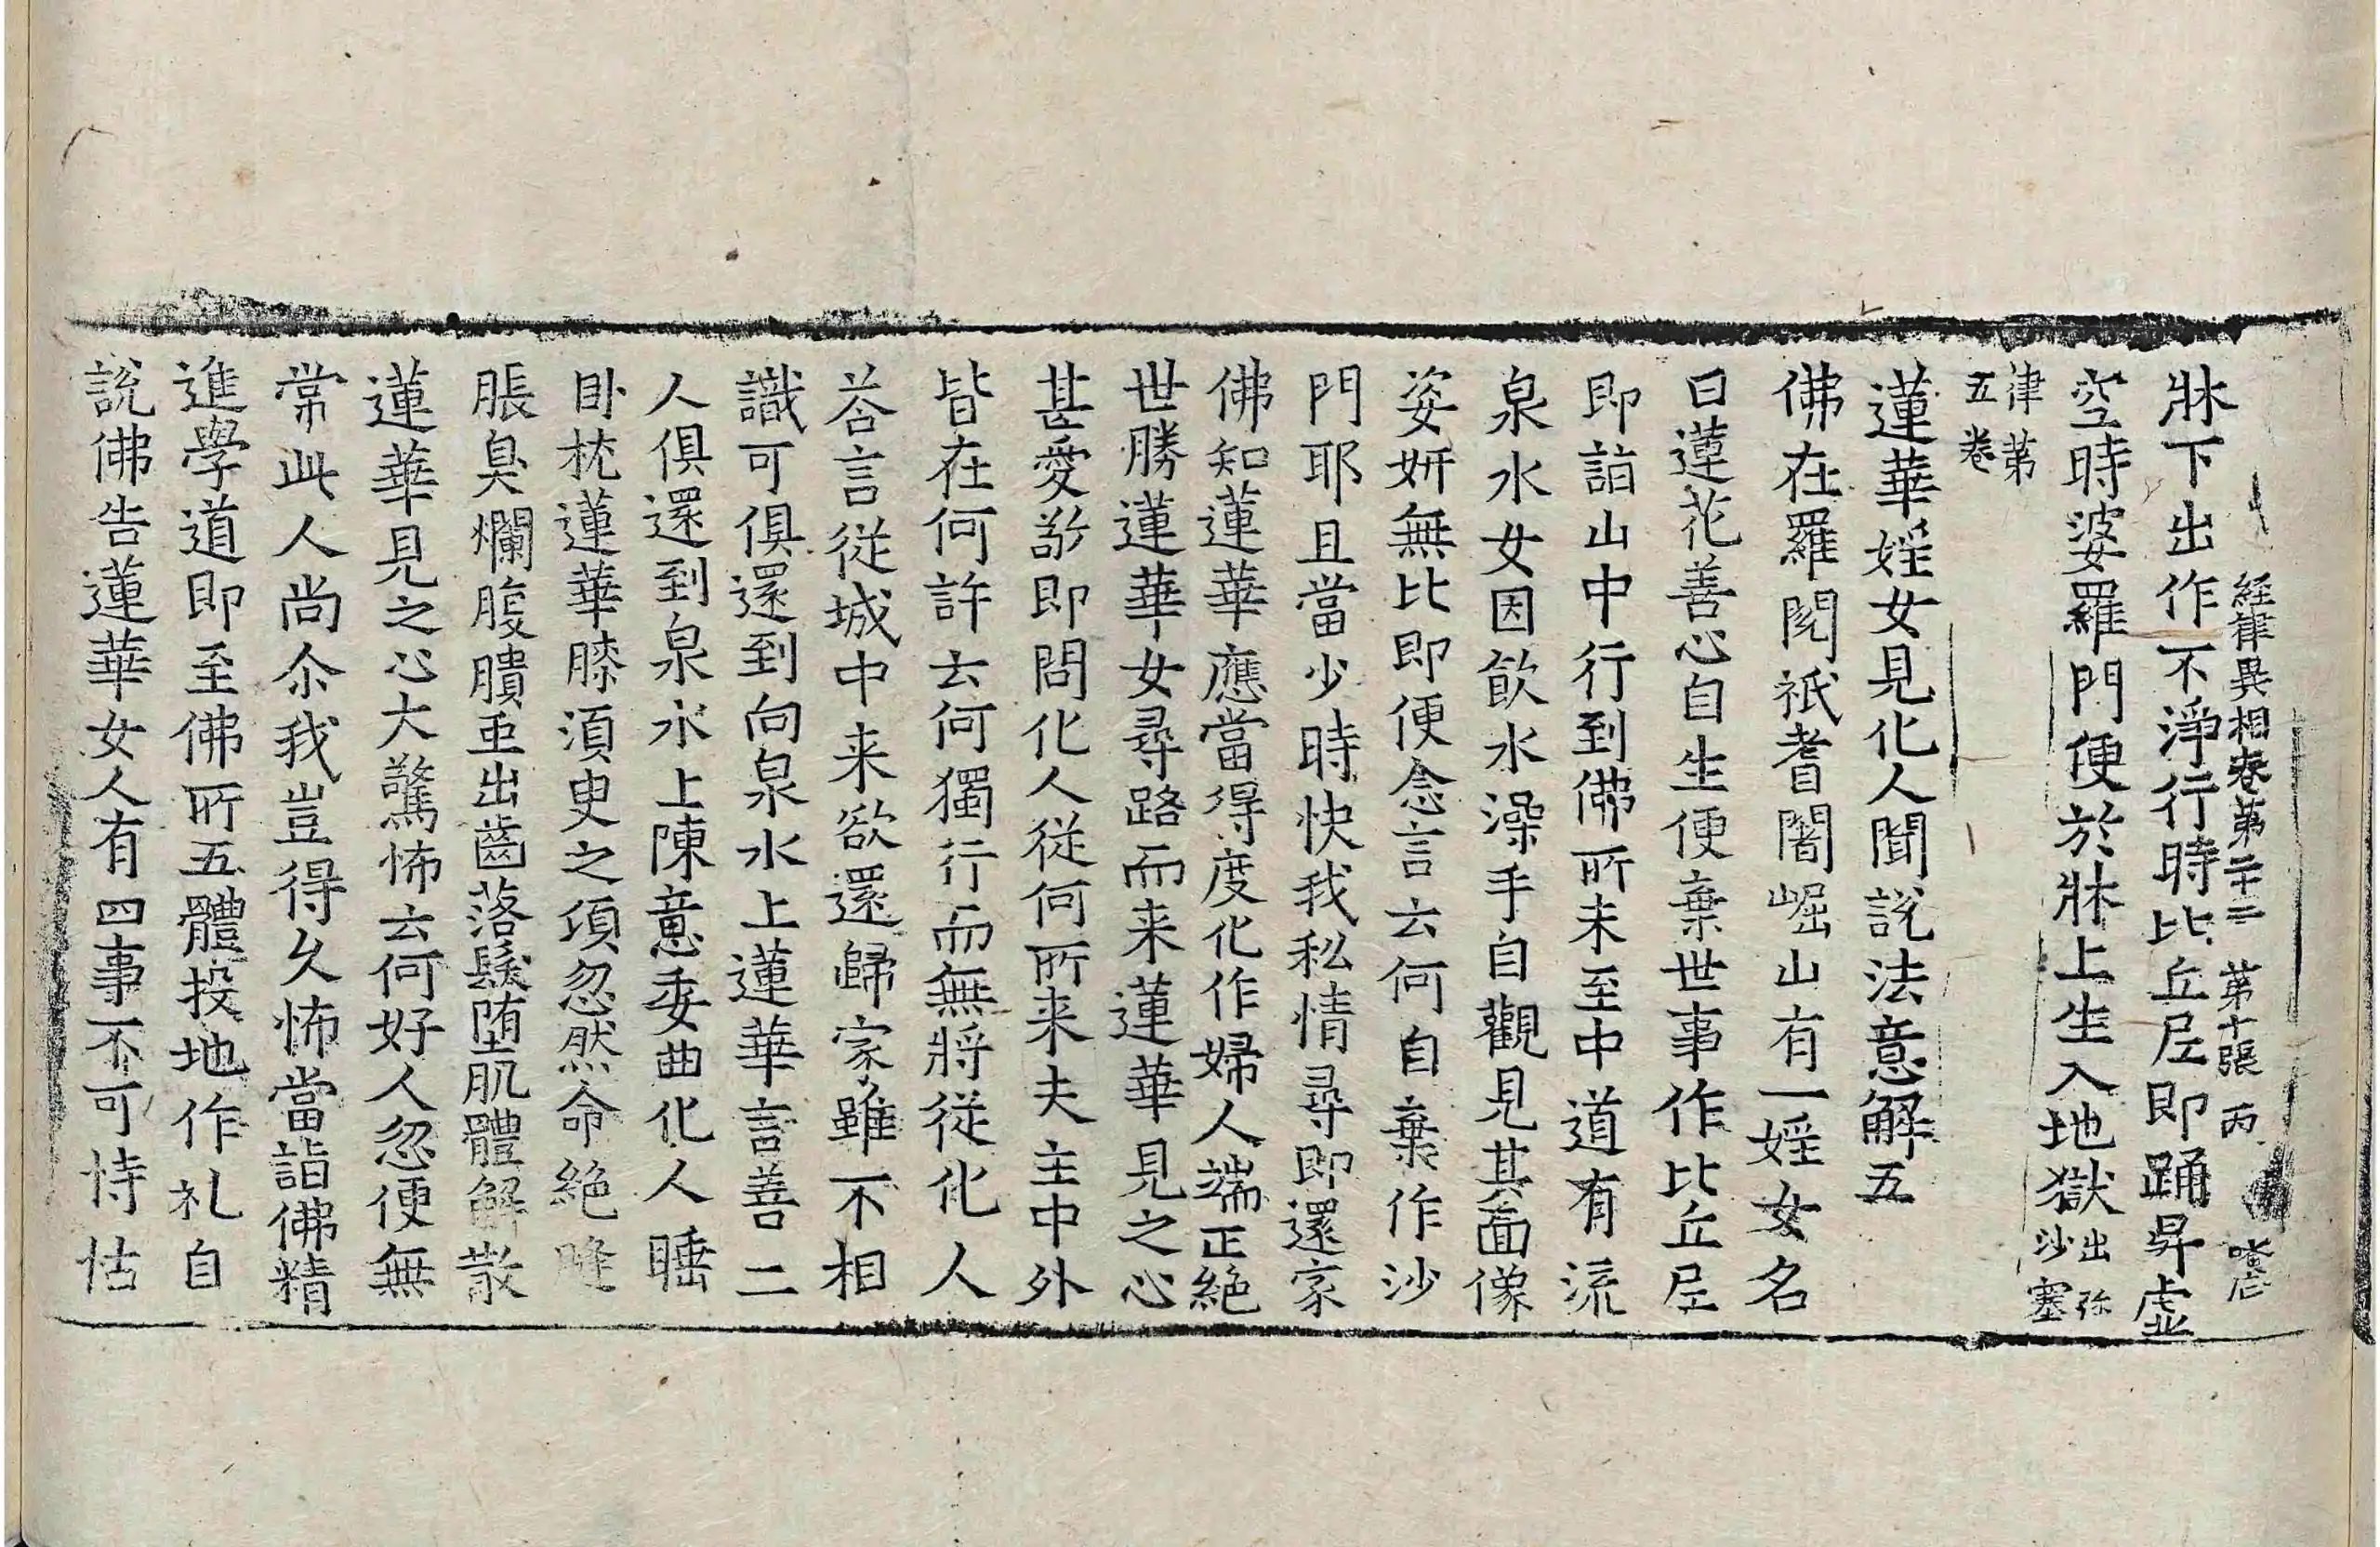 經律異相卷第二十三　第十張　丙
牀下出作不淨行時比丘尼即踊昇虛
空時婆羅門便於牀上生入地獄出弥沙塞
律第五卷
蓮華婬女見化人聞說法意解五
佛在羅閱祇耆闍崛山有一婬女名
曰蓮花善心自生便棄世事作比丘尼
即詣山中行到佛所未至中道有流
泉水女因飲水澡手自觀見其面像
姿妍無比即便念言云何自棄作沙
門耶且當少時快我私情尋即還家
佛知蓮華應當得度化作婦人端正絕
世勝蓮華女尋路而来蓮華見之心
甚愛敬即問化人從何所来夫主中外
皆在何許云何獨行而無將從化人
荅言從城中来欲還歸家雖不相
識可俱還到向泉水上蓮華言善二
人俱還到泉水上陳意委曲化人睡
卧枕蓮華膝湏臾之頃忽然命絕膖
脹臭爛腹膭䖝出齒落髮堕肌體解散
蓮華見之心大驚怖云何好人忽便無
常此人尚尒我豈得久怖當詣佛精
進學道即至佛所五體投地作礼自
說佛告蓮華女人有四事不可恃怙